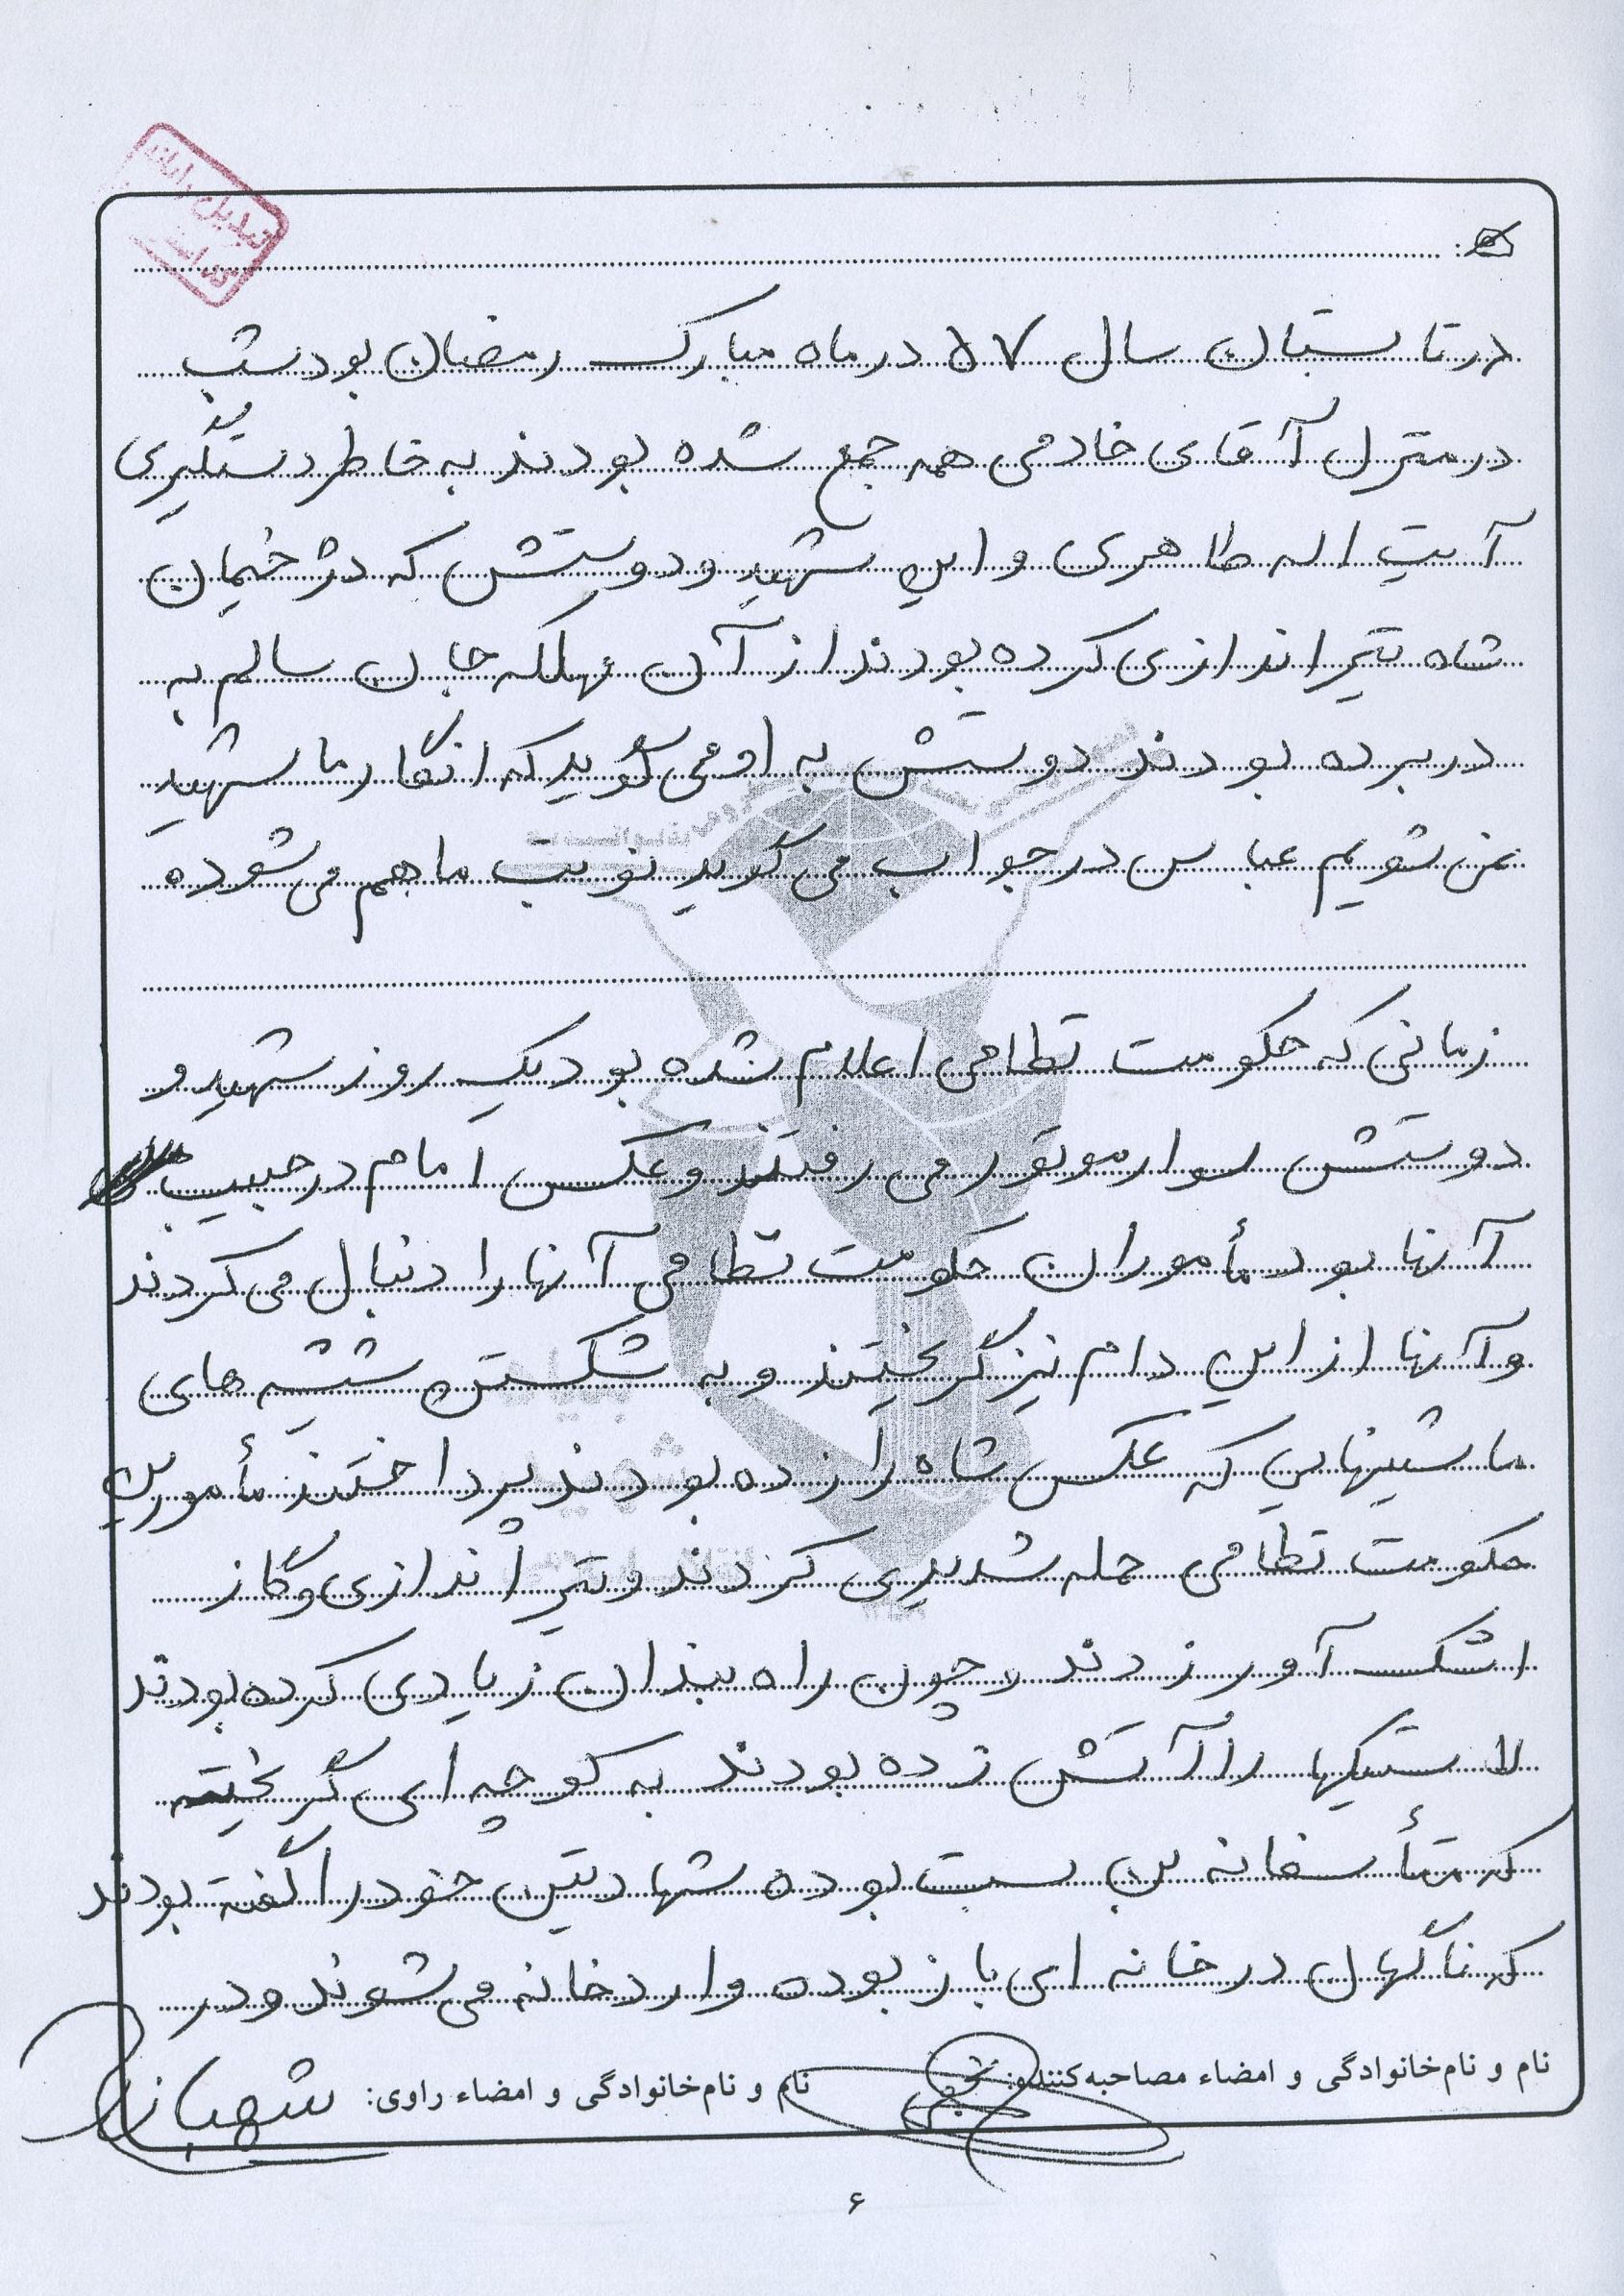 در تابستان سال ۵۷ در ماه مبارک رمضان بود شب
در منزل آقای خادمی همه جمع شده بودند به خاطر دستگیری
آیت اله طاهری و این شهید و دوستش که دژخیمان
شاه تیراندازی کرده بودند از آن مهلکه جان سالم به
در برده بودند دوستش به او می گوید که انگار ما شهید
نمی شویم عباس در جواب می گوید نوبت ما هم می شود ه
زمانی که حکومت نظامی اعلام شده بود یک روز شهید و
دوستش سوار موتور می رفتند و عکس امام در جیب
آنها بود مأموران حکومت نظامی آنها را دنبال می کردند
و آنها از این دام نیز گریختند و به شکستن شیشه های
ماشینهایی که عکس شاه را زده بودند پرداختند مأمورین
حکومت نظامی حمله شدیدی کردند و تیراندازی و گاز
اشک آور زدند و چون راه بندان زیادی کرده بودند
لاستیکها را آتش زده بودند به کوچه ای گریخته
که متأسفانه بن بست بوده شهادتین خود را گفته بودند
که ناگهان در خانه ای باز بوده وارد خانه می شوند و در
نام و نام‌خانوادگی و امضاء مصاحبه‌کننده: نام و نام‌خانوادگی و امضاء راوی: شهباز
۶